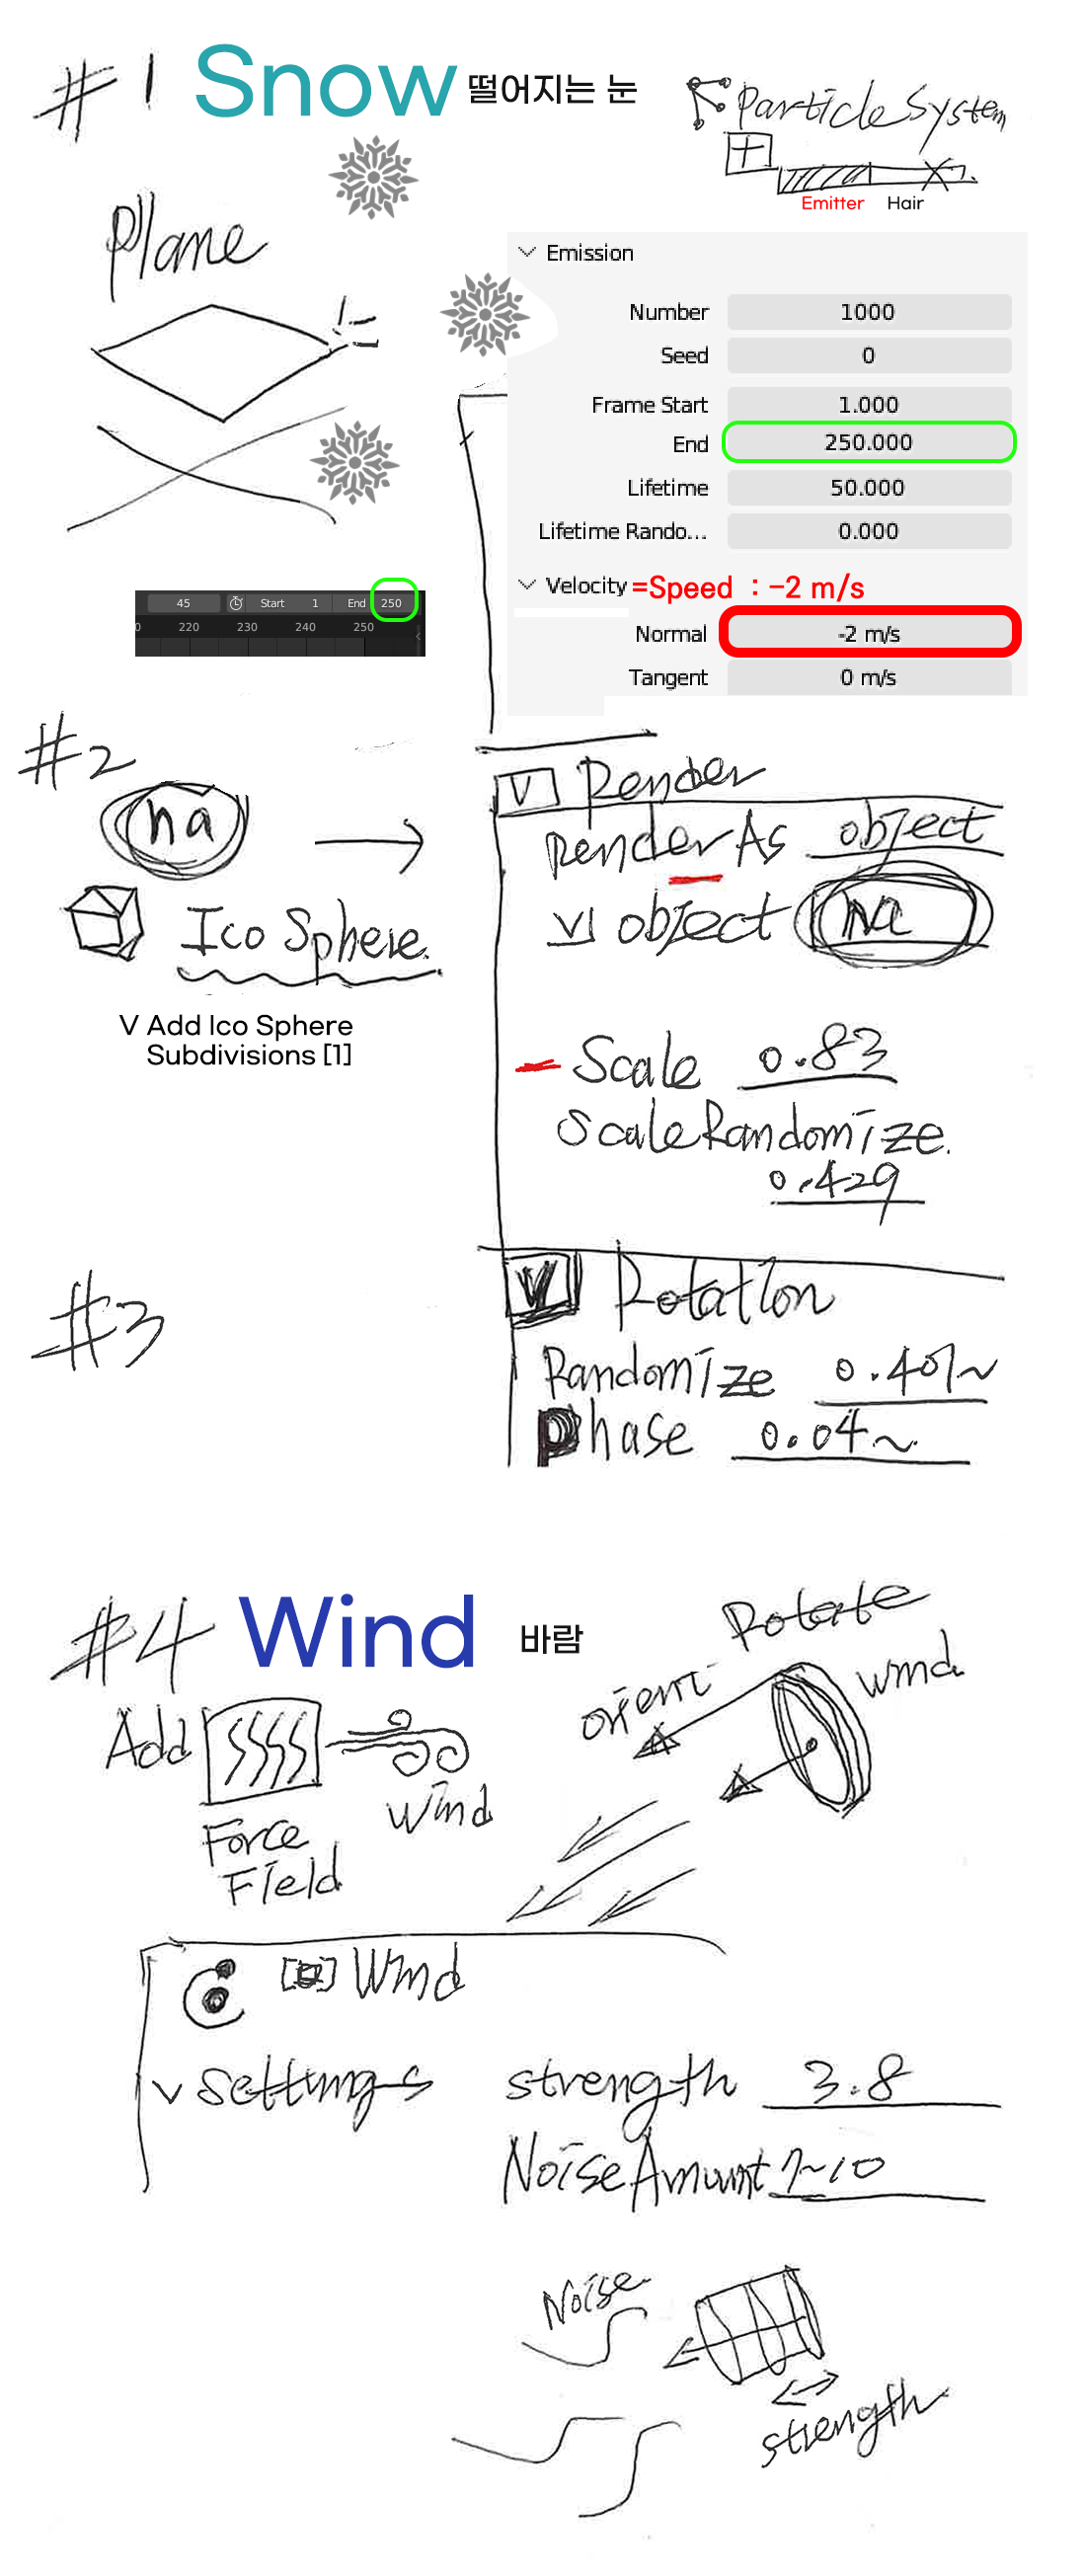 #1 Snow 떨어지는 눈
Particle System
+
Emitter Hair
Plane
Emission
Number 1000
Seed 0
Frame Start 1.000
End 250.000
Lifetime 50.000
Lifetime Rando... 0.000
Velocity =Speed : -2 m/s
Normal -2 m/s
Tangent 0 m/s
45 Start 1 End 250
0 220 230 240 250
#2
na
Ico Sphere
V Add Ico Sphere
Subdivisions [1]
V Render
Render As object
V object na
Scale 0.83
Scale Randomize
0.429
#3
V Rotation
Randomize 0.401~
Phase 0.04~
#4 Wind 바람
Rotate
wind
orient
Add
Wind
Force
Field
Wind
v settings
strength 3.8
Noise Amount 1~10
Noise
strength